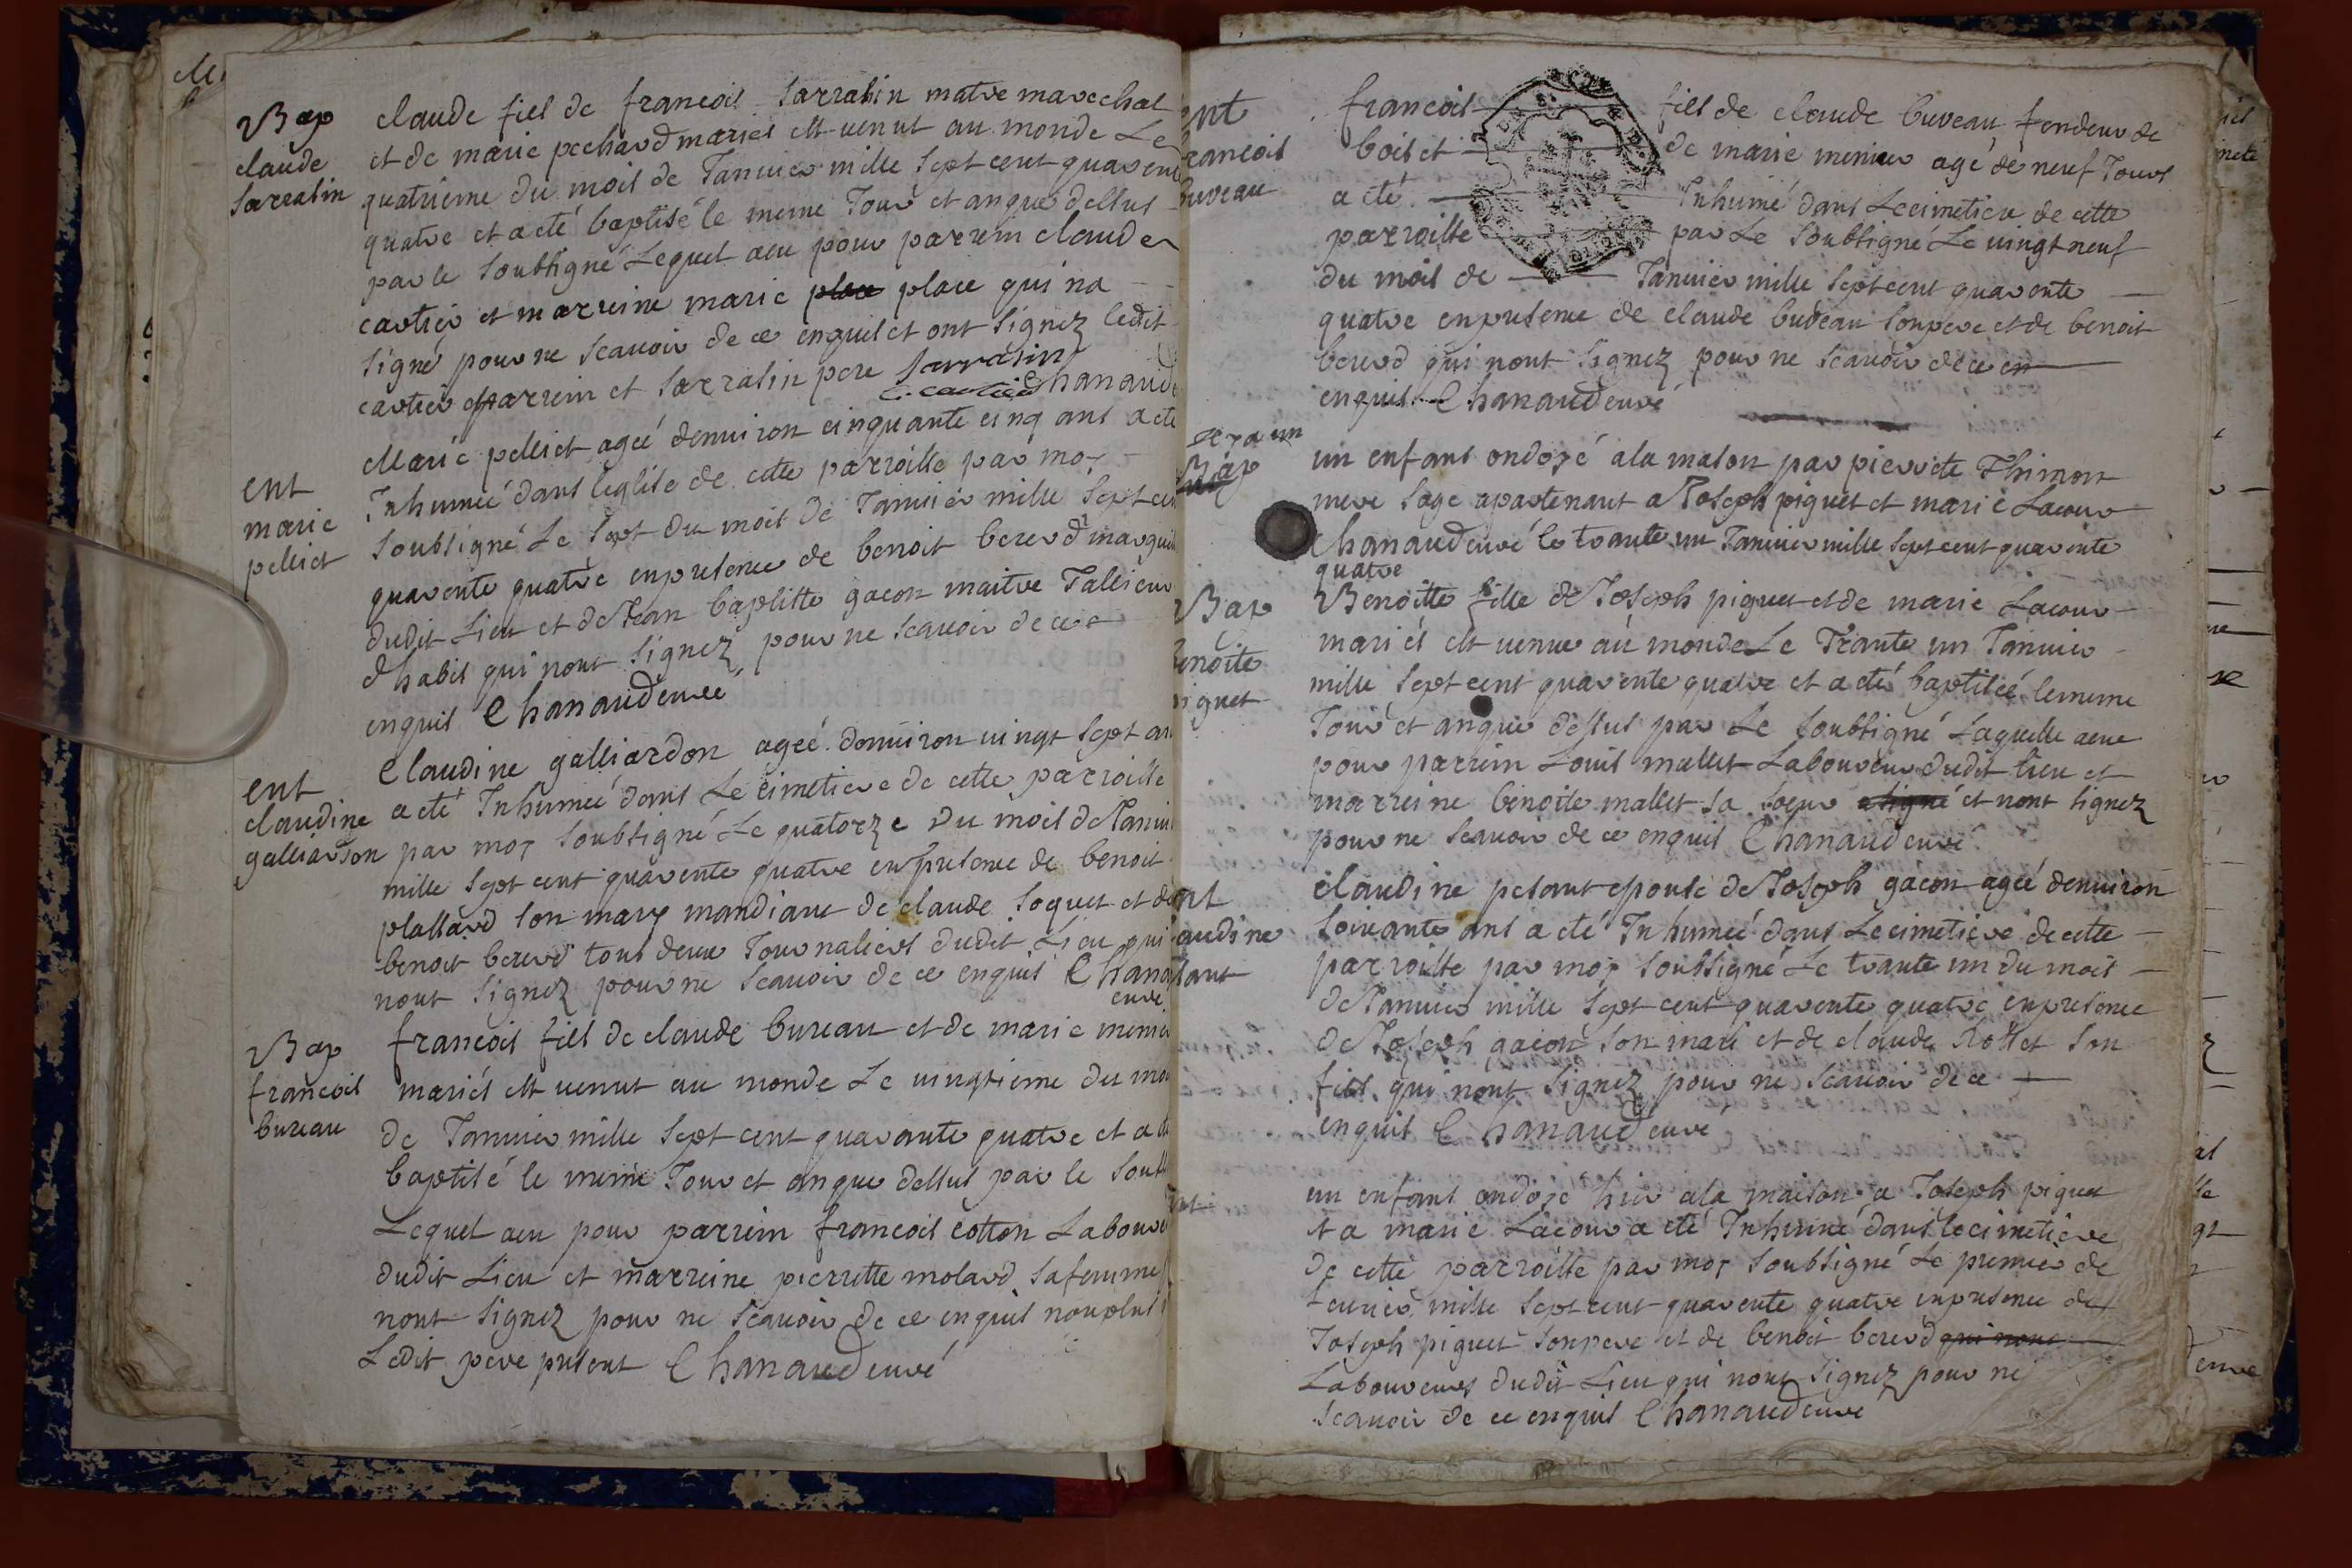 Bap
claude
sarrasin
claude fils de francois sarrasin matre marechal
et de marie pechard mariés est venut au monde Le
quatrieme du mois de Janvier mille sept cent quarente
quatre et a eté baptisé le meme Jour et an que dessus
par le soubsigné Lequel a eu pour parrein claude
cartier et marreine marie place place qui na
signé pour ne scauoir de ce enquis et ont signez ledit
cartier parrein et sarrasin pere sarrasin
c. cartier Chanaud
ent
marie
pelliet
Marie pelliet ageé denuiron cinquante cinq ans a eté
Inhumeé dans leglise de cette parroisse par moy
soubsigné Le sept du mois de Januier mille sept cent
quarente quatre en presence de benoit bererd marguil
dudit Lieu et de Jean baptiste gacon maitre Tallieur
dhabis qui nont signez pour ne scauoir de ce
enquis Chanaud curé
ent
claudine
galliardon
Claudine galliardon ageé denuiron uingt sept an
a eté Inhumeé dans Le cimetiere de cette parroisse
par moy soubsigné Le quatorze Du mois de Januie
mille sept cent quarente quatre en presence de benoit
plassard son mary mandiant de claude soquet et de
benoit bererd tous deux Journaliers dudit Lieu qui
nont signez pour ne scauoir de ce enquis Chanaud
curé
Bap
francois
bureau
francois fils de claude bureau et de marie menier
mariés est uenut au monde Le uingtieme du moi
de Januier mille sept cent quarante quatre et a eté
baptisé le meme Jour et an que dessus par le soubs
Lequel a eu pour parrein francois cotton Laboure
dudit Lieu et marreine pierrette molard sa femme
nont signez pour ne scauoir de ce enquis nonplus
Ledit pere present Chanaud curé
ent
francois
buveau
francois fils de claude buveau fendeur de
bois et de marie menier agé de neuf Jours
a eté Inhumé dans Le cimetiere de cette
parroisse par Le soubsigné Le uingt neuf
du mois de Januier mille sept cent quarente
quatre en presence de claude buveau son pere et de benoit
bererd qui nont signez pour ne scauoir de ce en
enquis Chanaud curé
Bap
un enfant ondoyé a la maison par pierrette Thimon
mere sage apartenant a Joseph piguet et marie Lacour
Chanaud curé le trante un Januier mille sept cent quarente
quatre
Bap
benoite
piguet
Benoitte fille de Joseph piguet et de marie Lacour
mariés est uenue au monde Le Trante un Januier
mille sept cent quarente quatre et a eté baptiseé le meme
Jour et an que dessus par Le soubsigné Laquelle a eue
pour parrein Louis mallet Laboureur dudit lieu et
marreine benoite mallet sa soeur a signé et nont signez
pour ne scauoir de ce enquis Chanaud curé
ent
claudine
pesant
claudine pesant epouse de Joseph gacon ageé denuiron
soixante ans a eté Inhumeé dans Le cimetiere de cette
parroisse par moy soubsigné Le trante un du mois
de Januier mille sept cent quarente quatre en presence
de Joseph gacon son mari et de claude Rosset son
fils qui nont signez pour ne scauoir de ce
enquis Chanaud curé
ent
un enfant ondoyé hier a la maison a Joseph piguet
et a marie Lacour a eté Inhumé dans le cimetiere
de cette parroisse par moy soubsigné Le premier de
feurier mille sept cent quarente quatre en presence de
Joseph piguet son pere et de benoit bererd qui nont
Laboureurs dudit Lieu qui nont signez pour ne
scauoir de ce enquis Chanaud curé